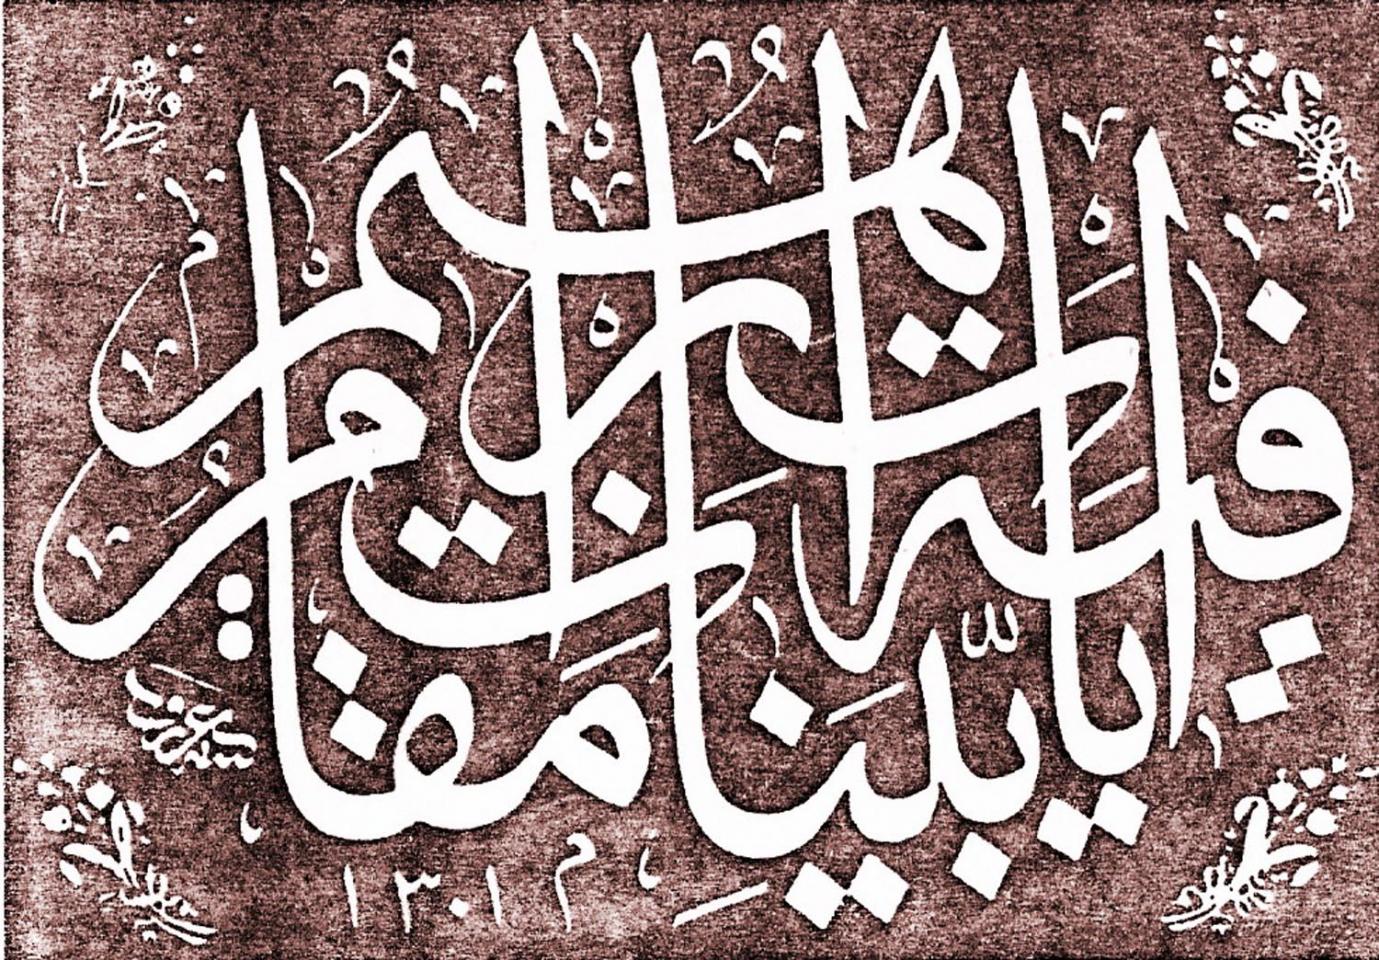 فيه ايات بينات مقام ابراهيم
١٣٠١